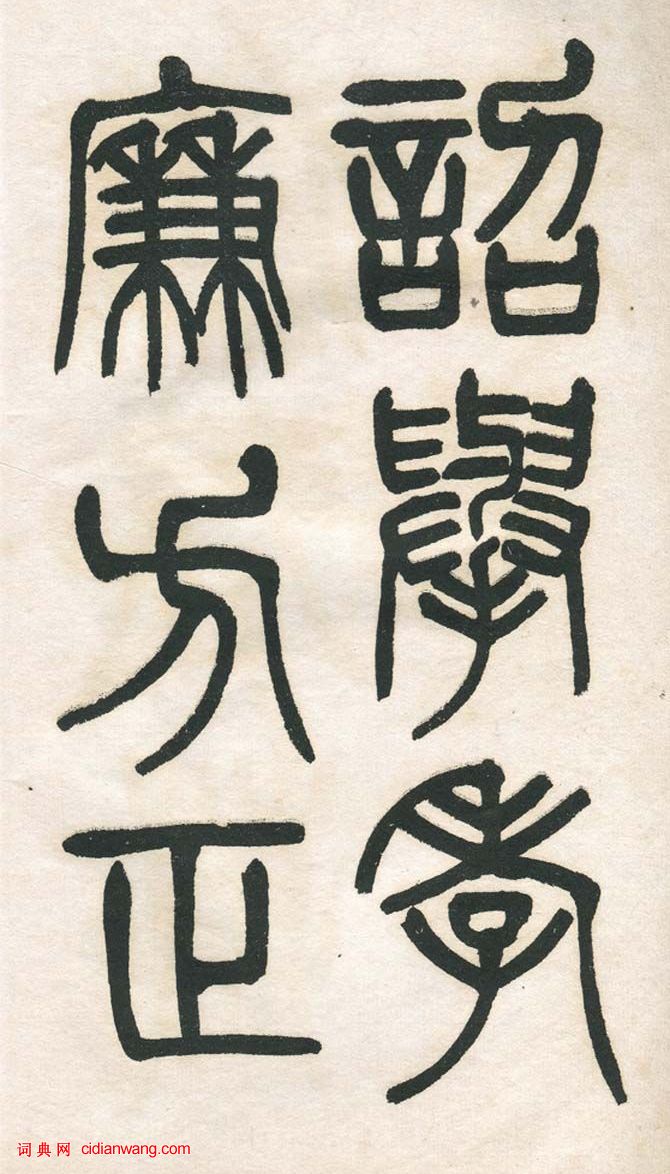 詔舉孝
廉方正
词典网 cidianwang.com